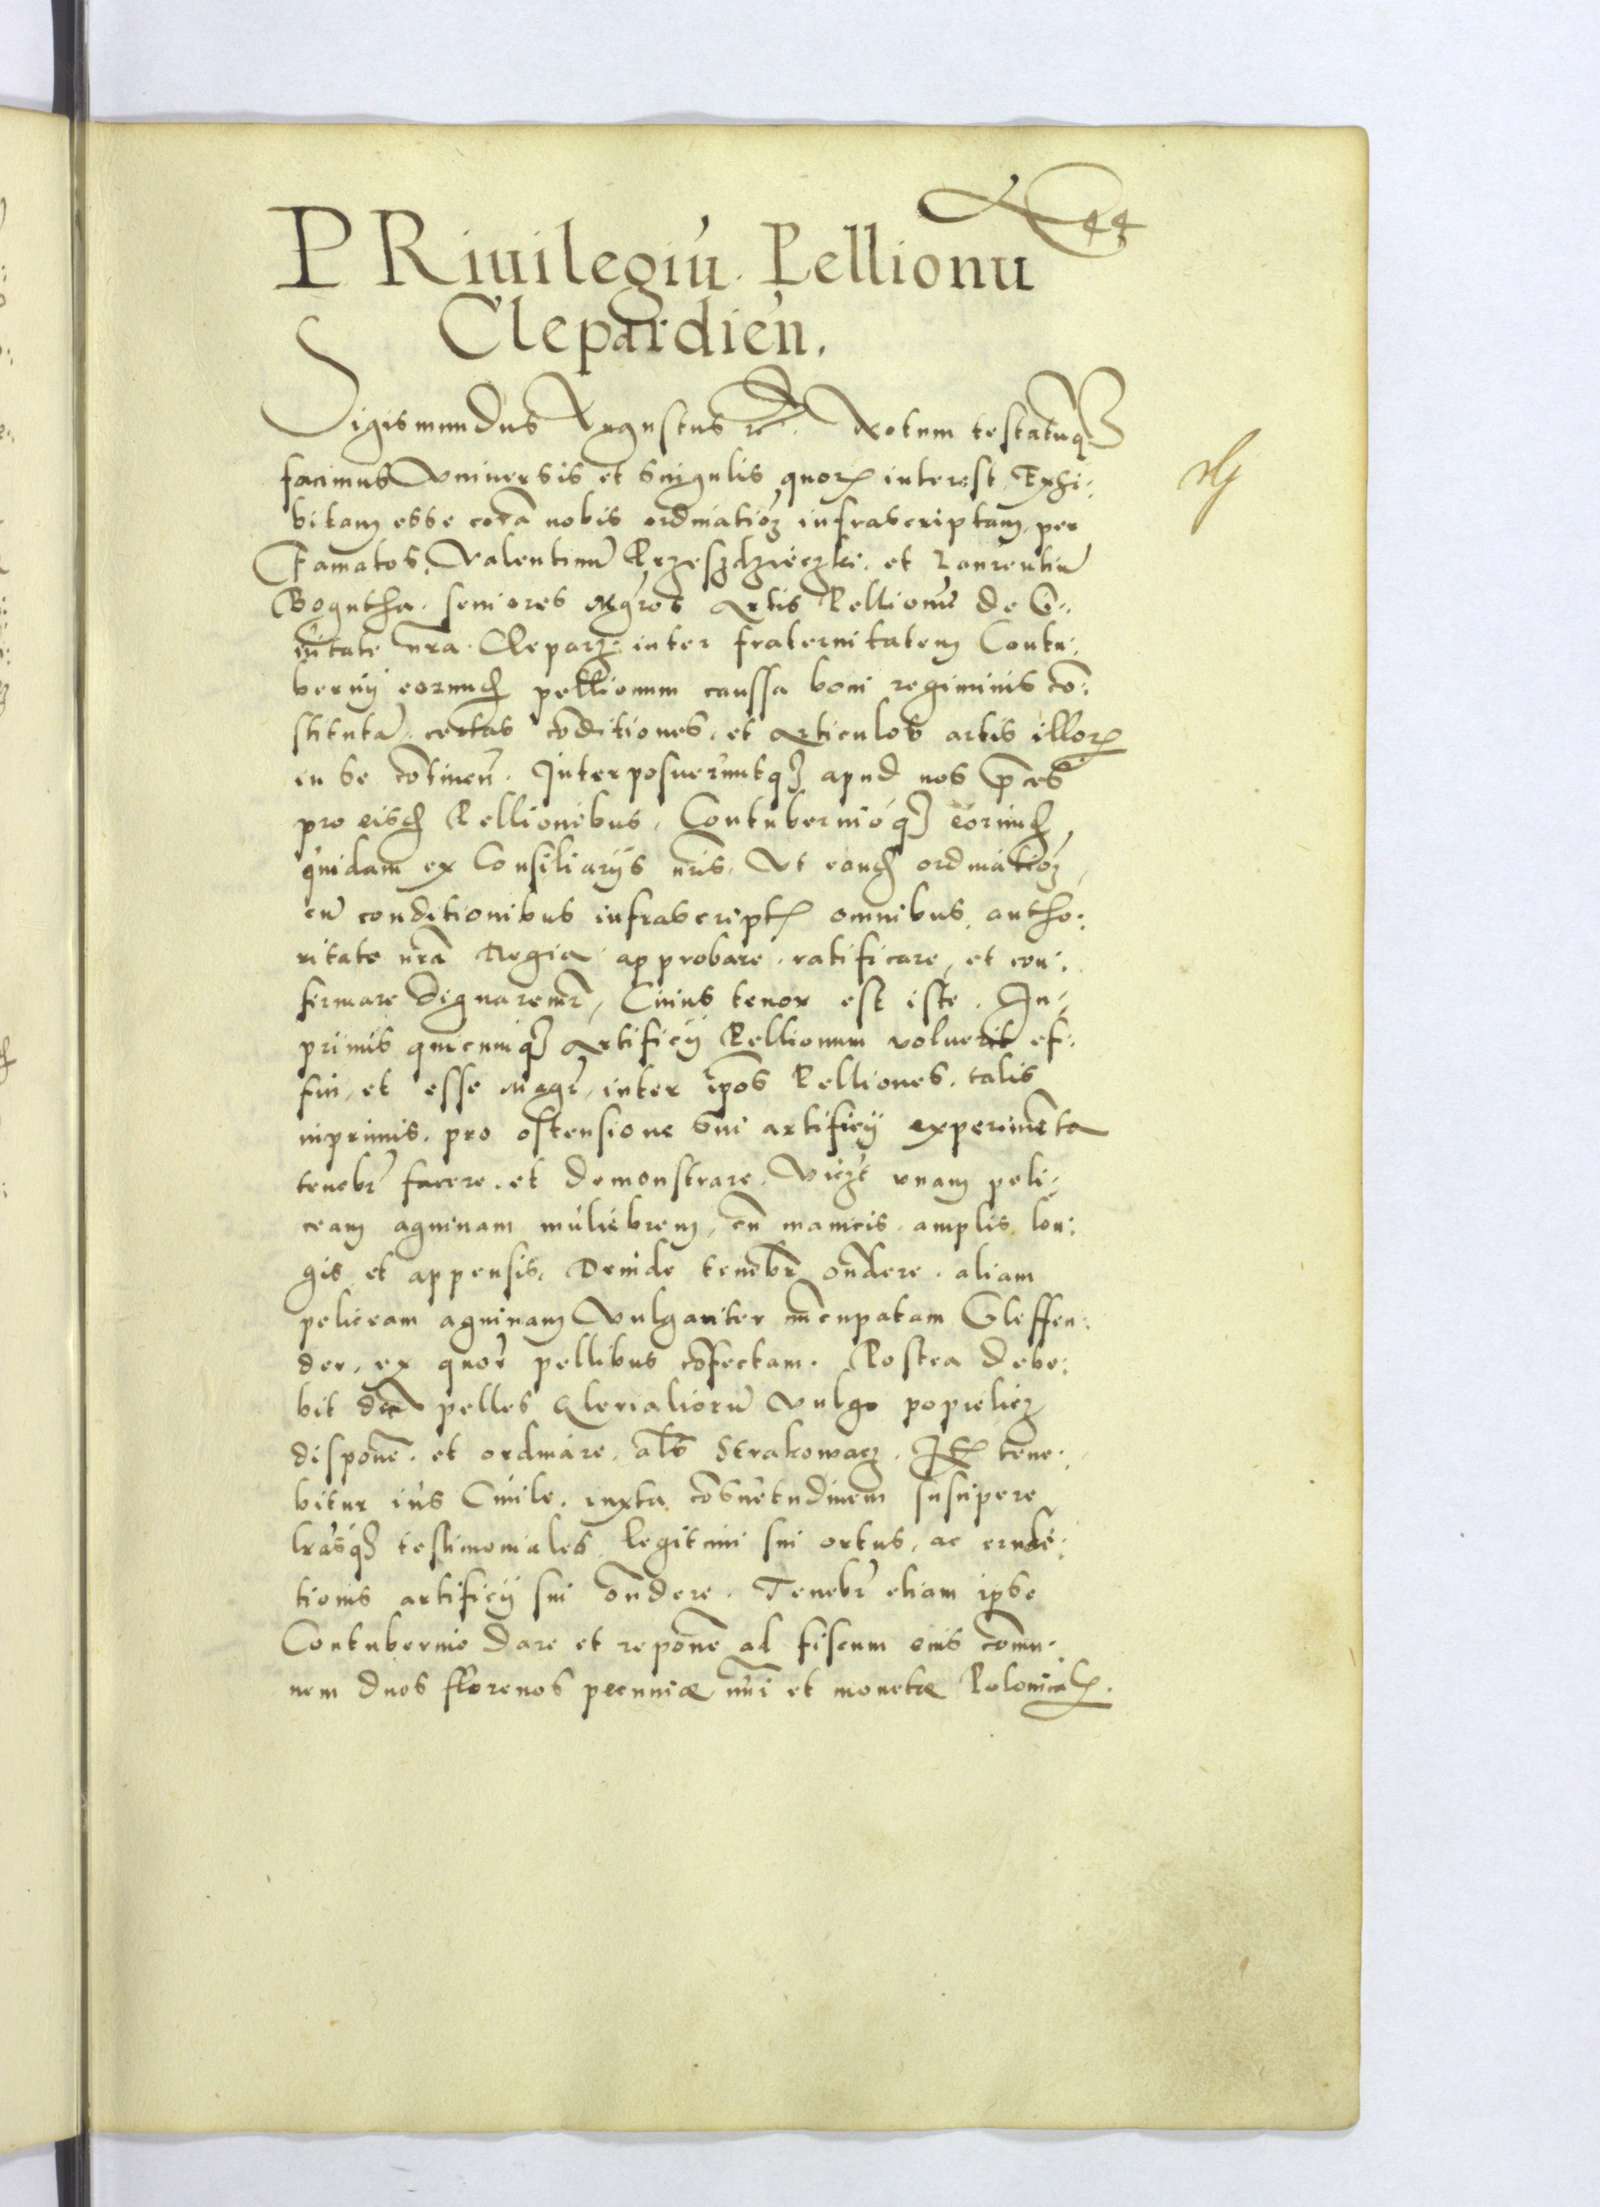 44
PRiuilegiũ Pellionu
Clepardieñ.
Sigismundus Augustus etc. Notum testatumq3
facimus Vniuersis et singulis quorum interest, Exhi-
bitam esse corã nobis ordinatioȝ infrascriptam per
Famatos, Valentinũ et Laurentiũ
Bogutha seniores Mgros Artis Pellionũ de Ci-
uitate nra Cleparȝ inter fraternitatem Contu-
bernij eorund pellionum caussa boni regiminis cõ-
stitutã, certas cõditiones, et articulos artis illorum
in se cõtineñ. Interposueruntq3 apud nos p̃ces
pro eisd Pellionibus, Contubernioq3 eorund
quidam ex Consiliarijs nris, Vt eand ordinatioȝ
cũ conditionibus infrascriptis omnibus autho-
ritate nrã Regia approbare, ratificare, et con-
firmare dignaremr, Cuius tenor est iste. In-
primis quicumq3 artificij Pellionum voluerit ef-
fici, et esse Magr, inter ip̃os Pelliones, talis
inprimis, pro ostensione sui artificij experimẽta
tenebr facere, et demonstrare, Viczt vnam peli-
ceam agninam muliebrem, cũ manicis amplis lon-
gis et appensis, Deinde tenebr oñdere aliam
peliceam agninam Vulgariter nũcupatam Gleffen-
der, ex quor pellibus cõfectam. Postea debe-
bit pelles Vulgo popielicȝ
disponẽ et ordinare, als Strakowacȝ. Itm tene-
bitur ius Ciuile, iuxta cõsuetudinem suscipere
lrãsq3 testimoniales legitimi sui ortus, ac erudi-
tionis artificij sui oñdere. Tenebr etiam ipse
Contubernio dare et reponẽ ad fiscum eius cõmu-
nem duos florenos pecuniæ nũi et monetæ Polonicalis.